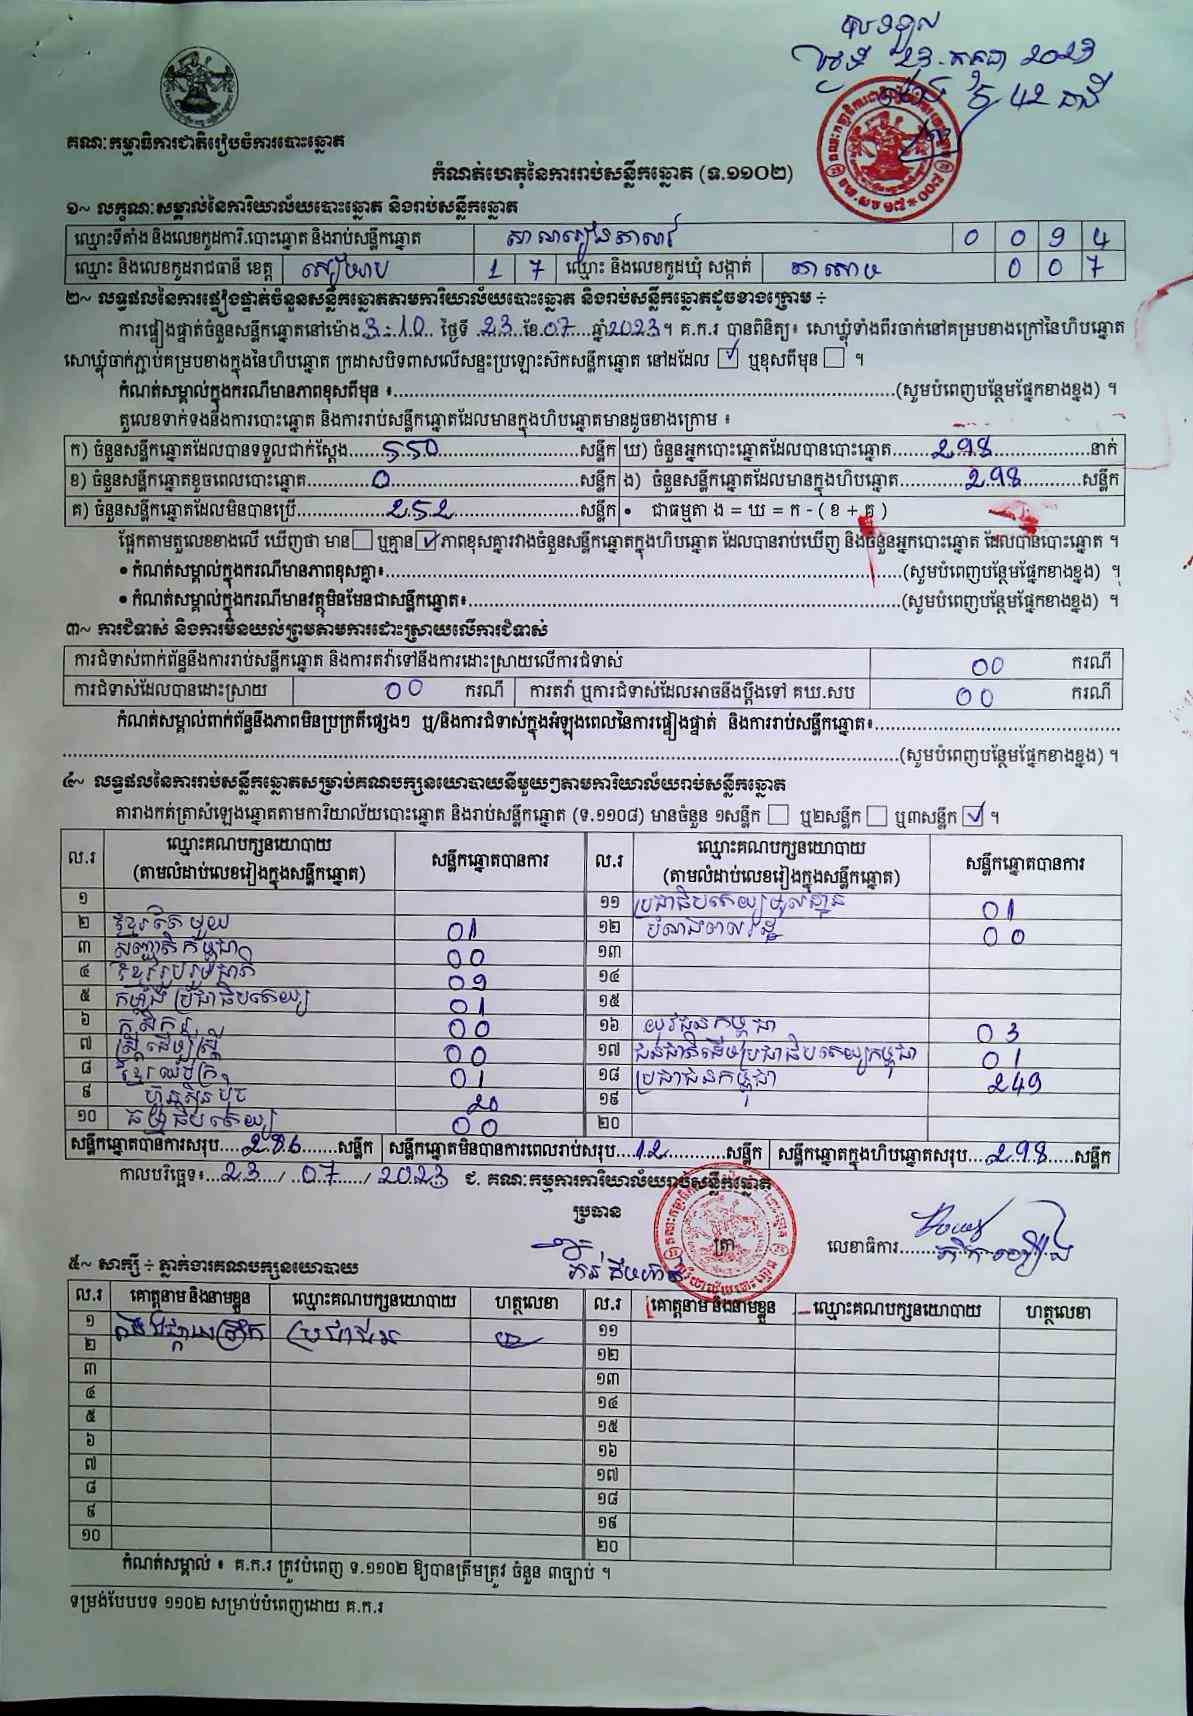 បានទទួល
ថ្ងៃទី 23 កក្កដា 2023
ម៉ោង 5 : 42 នាទី
គណៈកម្មាធិការជាតិរៀបចំការបោះឆ្នោត
កំណត់ហេតុនៃការរាប់សន្លឹកឆ្នោត (ទ.១១០២)
១~ លក្ខណៈសម្គាល់នៃការិយាល័យបោះឆ្នោត និងរាប់សន្លឹកឆ្នោត
ឈ្មោះទីតាំង និងលេខកូដការិ.បោះឆ្នោត និងរាប់សន្លឹកឆ្នោត 0 0 9 4
ឈ្មោះ និងលេខកូដរាជធានី ខេត្ត សៀមរាប 1 7 ឈ្មោះ និងលេខកូដឃុំ សង្កាត់ តាសោម 0 0 7
២~ លទ្ធផលនៃការផ្ទៀងផ្ទាត់ចំនួនសន្លឹកឆ្នោតតាមការិយាល័យបោះឆ្នោត និងរាប់សន្លឹកឆ្នោតដូចខាងក្រោម ÷
ការផ្ទៀងផ្ទាត់ចំនួនសន្លឹកឆ្នោតនៅម៉ោង 3:10 ថ្ងៃទី 23 ខែ 07 ឆ្នាំ 2023 ។ គ.ក.រ បានពិនិត្យ៖ សោឃ្លុំទាំងពីរចាក់នៅគម្របខាងក្រៅនៃហិបឆ្នោត
សោឃ្លុំចាក់ភ្ជាប់គម្របខាងក្នុងនៃហិបឆ្នោត ក្រដាសបិទពាសលើសន្ទះប្រឡោះស៊កសន្លឹកឆ្នោត នៅដដែល ☑ ឬខុសពីមុន ☐ ។
កំណត់សម្គាល់ក្នុងករណីមានភាពខុសពីមុន ៖........(សូមបំពេញបន្ថែមផ្នែកខាងខ្នង) ។
តួលេខទាក់ទងនឹងការបោះឆ្នោត និងការរាប់សន្លឹកឆ្នោតដែលមានក្នុងហិបឆ្នោតមានដូចខាងក្រោម ៖
ក) ចំនួនសន្លឹកឆ្នោតដែលបានទទួលជាក់ស្តែង 550 សន្លឹក ឃ) ចំនួនអ្នកបោះឆ្នោតដែលបានបោះឆ្នោត 298 នាក់
ខ) ចំនួនសន្លឹកឆ្នោតខូចពេលបោះឆ្នោត 0 សន្លឹក ង) ចំនួនសន្លឹកឆ្នោតដែលមានក្នុងហិបឆ្នោត 298 សន្លឹក
គ) ចំនួនសន្លឹកឆ្នោតដែលមិនបានប្រើ 252 សន្លឹក • ជាធម្មតា ង = ឃ = ក - ( ខ + គ )
ផ្អែកតាមតួលេខខាងលើ ឃើញថា មាន ☐ ឬគ្មាន ☑ ភាពខុសគ្នារវាងចំនួនសន្លឹកឆ្នោតក្នុងហិបឆ្នោត ដែលបានរាប់ឃើញ និងចំនួនអ្នកបោះឆ្នោត ដែលបានបោះឆ្នោត ។
• កំណត់សម្គាល់ក្នុងករណីមានភាពខុសគ្នា៖........(សូមបំពេញបន្ថែមផ្នែកខាងខ្នង) ។
• កំណត់សម្គាល់ក្នុងករណីមានវត្ថុមិនមែនជាសន្លឹកឆ្នោត៖........(សូមបំពេញបន្ថែមផ្នែកខាងខ្នង) ។
៣~ ការជំទាស់ និងការមិនយល់ព្រមតាមការដោះស្រាយលើការជំទាស់
ការជំទាស់ពាក់ព័ន្ធនឹងការរាប់សន្លឹកឆ្នោត និងការតវ៉ាទៅនឹងការដោះស្រាយលើការជំទាស់ 00 ករណី
ការជំទាស់ដែលបានដោះស្រាយ 00 ករណី ការតវ៉ា ឬការជំទាស់ដែលអាចនឹងប្តឹងទៅ គឃ.សប 00 ករណី
កំណត់សម្គាល់ពាក់ព័ន្ធនឹងភាពមិនប្រក្រតីផ្សេងៗ ឬ/និងការជំទាស់ក្នុងអំឡុងពេលនៃការផ្ទៀងផ្ទាត់ និងការរាប់សន្លឹកឆ្នោត៖........
........(សូមបំពេញបន្ថែមផ្នែកខាងខ្នង) ។
៤~ លទ្ធផលនៃការរាប់សន្លឹកឆ្នោតសម្រាប់គណបក្សនយោបាយនីមួយៗតាមការិយាល័យរាប់សន្លឹកឆ្នោត
តារាងកត់ត្រាសំឡេងឆ្នោតតាមការិយាល័យបោះឆ្នោត និងរាប់សន្លឹកឆ្នោត (ទ.១១០៨) មានចំនួន ១សន្លឹក ☐ ឬ២សន្លឹក ☐ ឬ៣សន្លឹក ☑ ។
ល.រ ឈ្មោះគណបក្សនយោបាយ (តាមលំដាប់លេខរៀងក្នុងសន្លឹកឆ្នោត) សន្លឹកឆ្នោតបានការ ល.រ ឈ្មោះគណបក្សនយោបាយ (តាមលំដាប់លេខរៀងក្នុងសន្លឹកឆ្នោត) សន្លឹកឆ្នោតបានការ
១ ១១ ប្រជាធិបតេយ្យមូលដ្ឋាន 01
២ ខ្មែរតែមួយ 01 ១២ បំណងពលរដ្ឋ 00
៣ សញ្ជាតិកម្ពុជា 00 ១៣
៤ ខ្មែររួបរួមជាតិ 09 ១៤
៥ កម្លាំងប្រជាធិបតេយ្យ 01 ១៥
៦ កសិករ 00 ១៦ យុវជនកម្ពុជា 03
៧ ស្ត្រីដើម្បីស្ត្រី 00 ១៧ ជនជាតិដើមប្រជាធិបតេយ្យកម្ពុជា 01
៨ ខ្មែរឈប់ក្រ 01 ១៨ ប្រជាជនកម្ពុជា 249
៩ ហ៊្វុនស៊ិនប៉ិច 20 ១៩
១០ ធម្មាធិបតេយ្យ 00 ២០
សន្លឹកឆ្នោតបានការសរុប 286 សន្លឹក សន្លឹកឆ្នោតមិនបានការពេលរាប់សរុប 12 សន្លឹក សន្លឹកឆ្នោតក្នុងហិបឆ្នោតសរុប 298 សន្លឹក
កាលបរិច្ឆេទ៖ 23 / 07 / 2023 ជ. គណៈកម្មការការិយាល័យរាប់សន្លឹកឆ្នោត
ប្រធាន
ត្រា លេខាធិការ
៥~ សាក្សី ÷ ភ្នាក់ងារគណបក្សនយោបាយ
ល.រ គោត្តនាម និងនាមខ្លួន ឈ្មោះគណបក្សនយោបាយ ហត្ថលេខា ល.រ គោត្តនាម និងនាមខ្លួន ឈ្មោះគណបក្សនយោបាយ ហត្ថលេខា
១ ប្រជាជន ១១
២ ១២
៣ ១៣
៤ ១៤
៥ ១៥
៦ ១៦
៧ ១៧
៨ ១៨
៩ ១៩
១០ ២០
កំណត់សម្គាល់ ៖ គ.ក.រ ត្រូវបំពេញ ទ.១១០២ ឱ្យបានត្រឹមត្រូវ ចំនួន ៣ច្បាប់ ។
ទម្រង់បែបបទ ១១០២ សម្រាប់បំពេញដោយ គ.ក.រ